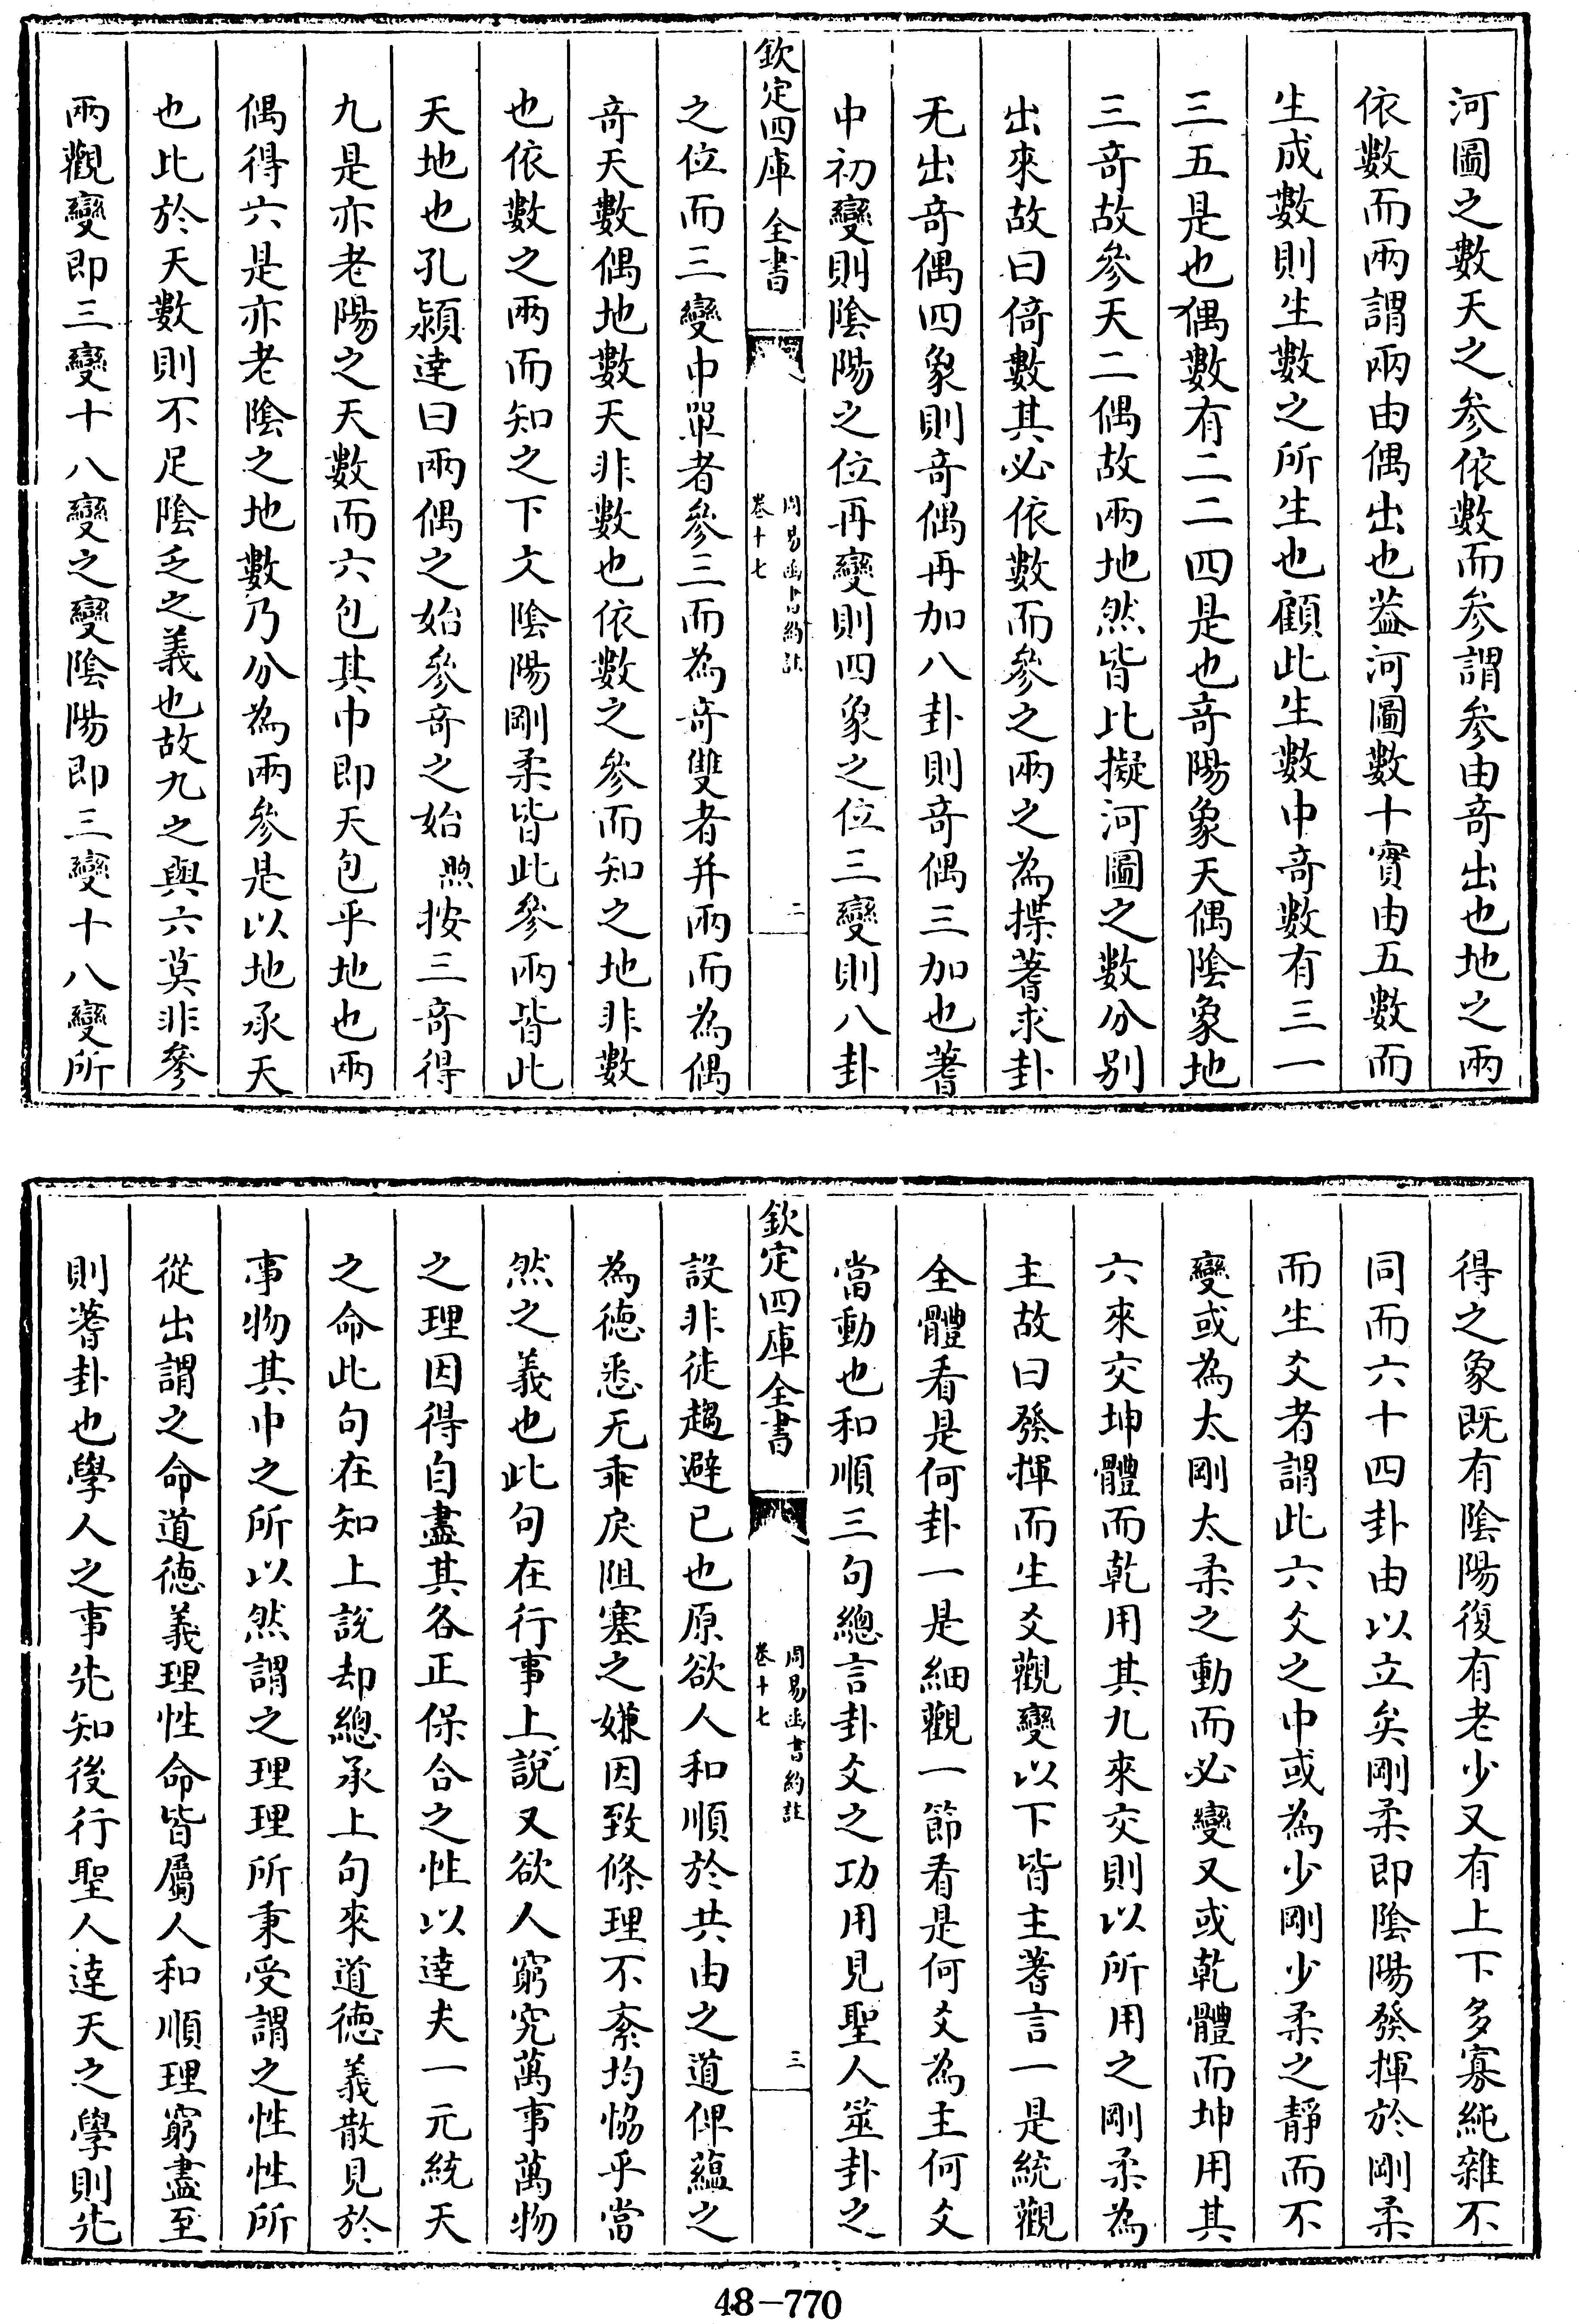 河圖之數天之參依數而參謂參由奇出也地之兩
依數而兩謂兩由偶出也葢河圖數十實由五數而
生成數則生數之所生也顧此生數中奇數有三一
三五是也偶數有二二四是也奇陽象天偶陰象地
三奇故參天二偶故兩地然皆比擬河圖之數分别
出來故曰倚數其必依數而參之兩之為揲蓍求卦
无出奇偶四象則奇偶再加八卦則奇偶三加也蓍
中初變則陰陽之位再變則四象之位三變則八卦
欽定四庫全書
周易函書約註
卷十七
二
之位而三變中單者參三而為奇雙者并兩而為偶
奇天數偶地數天非數也依數之參而知之地非數
也依數之兩而知之下文陰陽剛柔皆此參兩皆此
天地也孔潁達曰兩偶之始參奇之始煦按三奇得
九是亦老陽之天數而六包其中即天包乎地也兩
偶得六是亦老陰之地數乃分為兩參是以地承天
也比於天數則不足陰乏之義也故九之與六莫非參
兩觀變即三變十八變之變陰陽即三變十八變所
得之象既有陰陽復有老少又有上下多寡純雜不
同而六十四卦由以立矣剛柔即陰陽發揮於剛柔
而生爻者謂此六爻之中或為少剛少柔之靜而不
變或為太剛太柔之動而必變又或乾體而坤用其
六來交坤體而乾用其九來交則以所用之剛柔為
主故曰發揮而生爻觀變以下皆主蓍言一是統觀
全體看是何卦一是細觀一節看是何爻為主何爻
當動也和順三句總言卦爻之功用見聖人筮卦之
欽定四庫全書
周易函書約註
卷十七
三
設非徒趨避已也原欲人和順於共由之道俾蘊之
為德悉无乖戾阻塞之嫌因致條理不紊均恊乎當
然之義也此句在行事上說又欲人窮究萬事萬物
之理因得自盡其各正保合之性以達夫一元統天
之命此句在知上說却總承上句來道德義散見於
事物其中之所以然謂之理理所秉受謂之性性所
從出謂之命道德義理性命皆屬人和順理窮盡至
則蓍卦也學人之事先知後行聖人達天之學則先
48-770